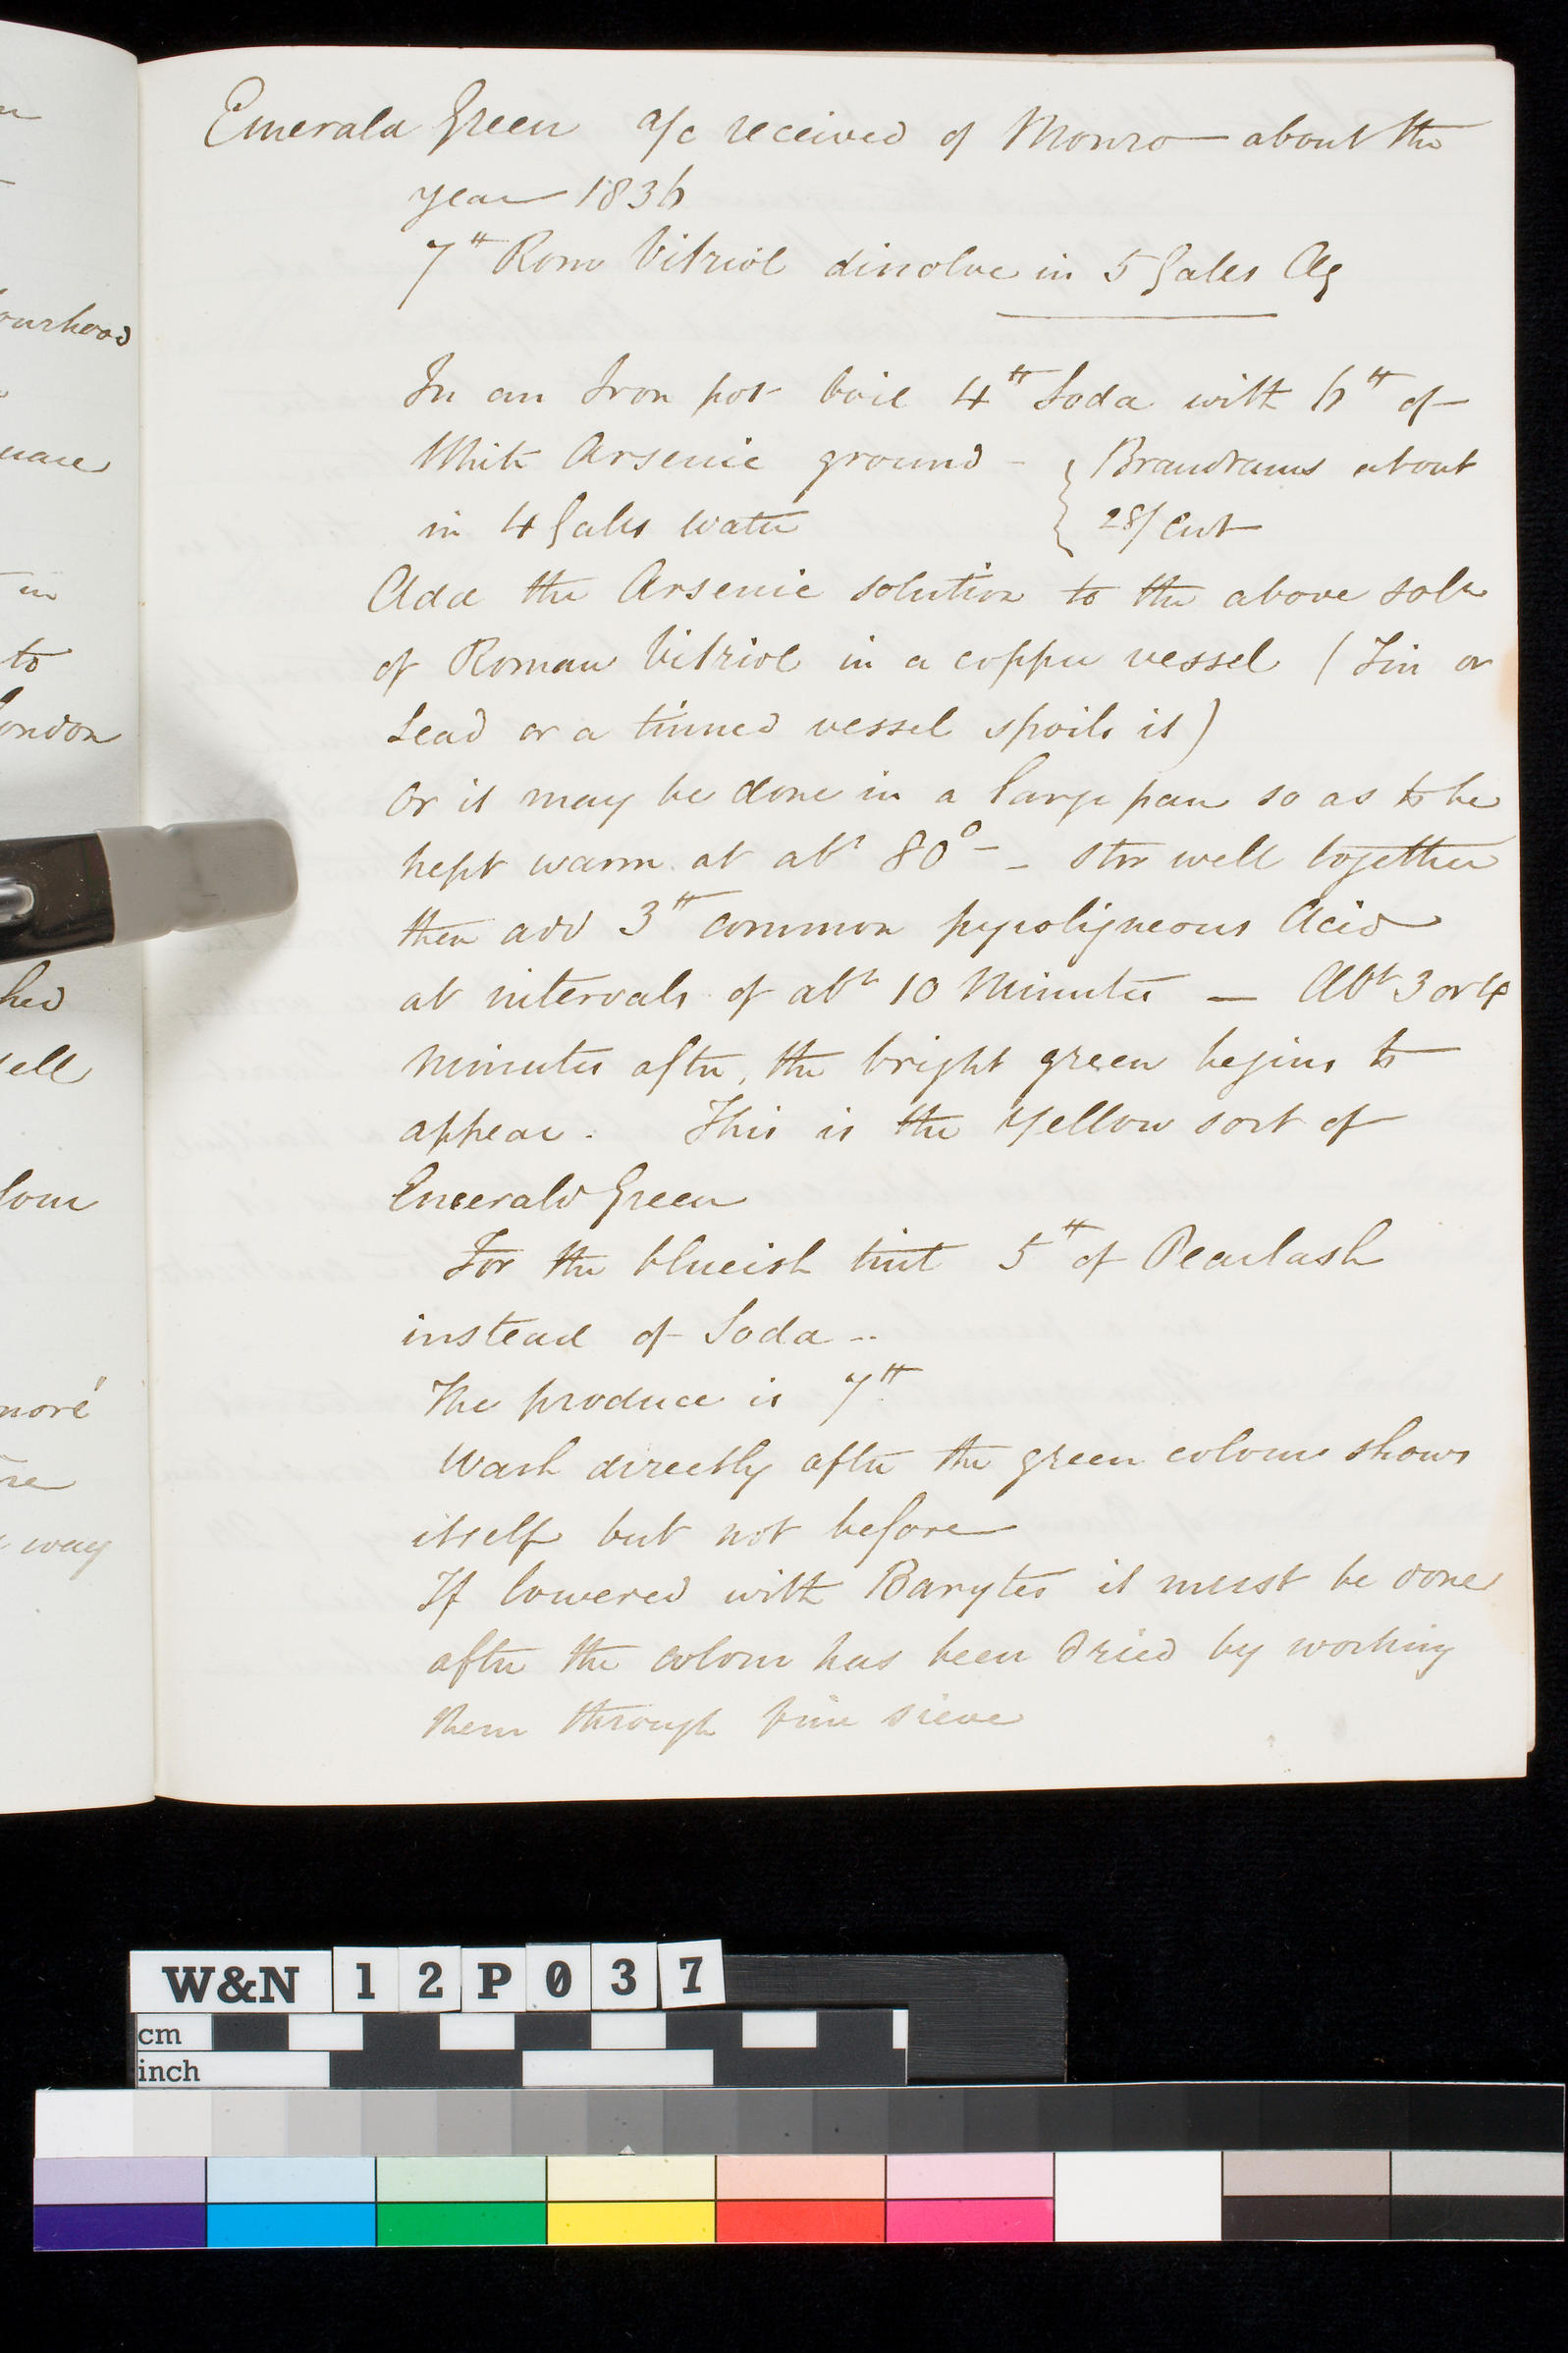 Emerald Green a/c received of Monro about the
year 1836
7 ℔ Rom Vitriol dissolve in 5 Galls Aq
In an Iron pot boil 4 ℔ Soda with 6 ℔ of
White Arsenic ground - { Brandrams about
in 4 Galls water { 28/ Cwt
Add the Arsenic solution to the above soln
of Roman Vitriol in a copper vessel (Tin or
Lead or a tinned vessel spoils it)
Or it may be done in a large pan so as to be
kept warm at abt 80° - - stir well together
then add 3 ℔ common pyroligneous Acid
at intervals of abt 10 Minutes — Abt 3 or 4
minutes after, the bright green begins to
appear. This is the Yellow sort of
Emerald Green
For the blueish tint 5 ℔ of Pearlash
instead of Soda --
The produce is 7 ℔
Wash directly after the green colour shows
itself but not before
If lowered with Barytes it must be done
after the colour has been dried by working
them through fine sieve
ourhood
in
to
London
ell
moré
way
W&N 12P037
cm
inch